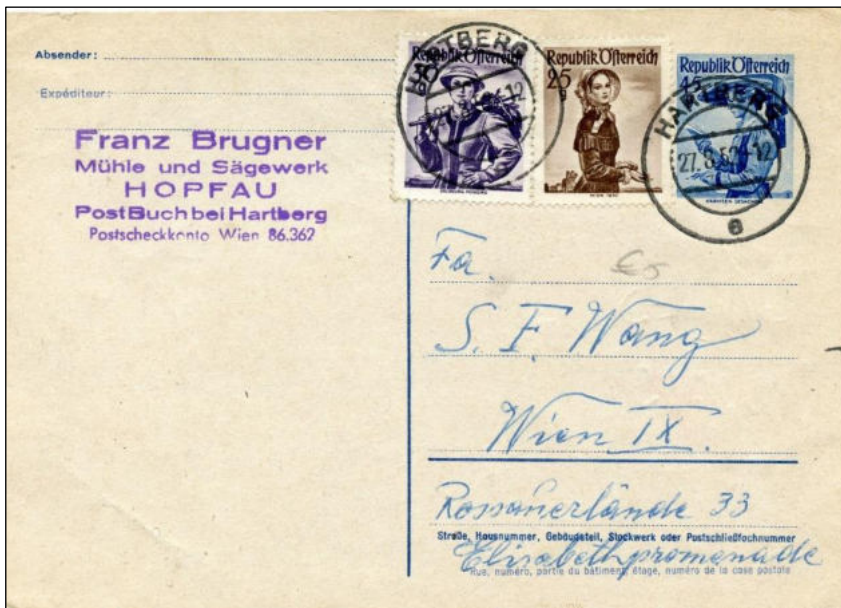 Absender:
Expéditeur:
Franz Brugner
Mühle und Sägewerk
HOPFAU
Post Buch bei Hartberg
Postscheckkonto Wien 86.362
Republik Österreich
HARTBERG
Republik Österreich
25
g
WIEN 1850
Republik Österreich
45
HARTBERG
27. 8. 52 - 12
e
Fa.
S. F. Wang
Wien IX.
Rossauerlände 33
Straße, Hausnummer, Gebäudeteil, Stockwerk oder Postschließfachnummer
Elisabethpromenade
Rue, numéro, partie du bâtiment, étage, numéro de la case postale